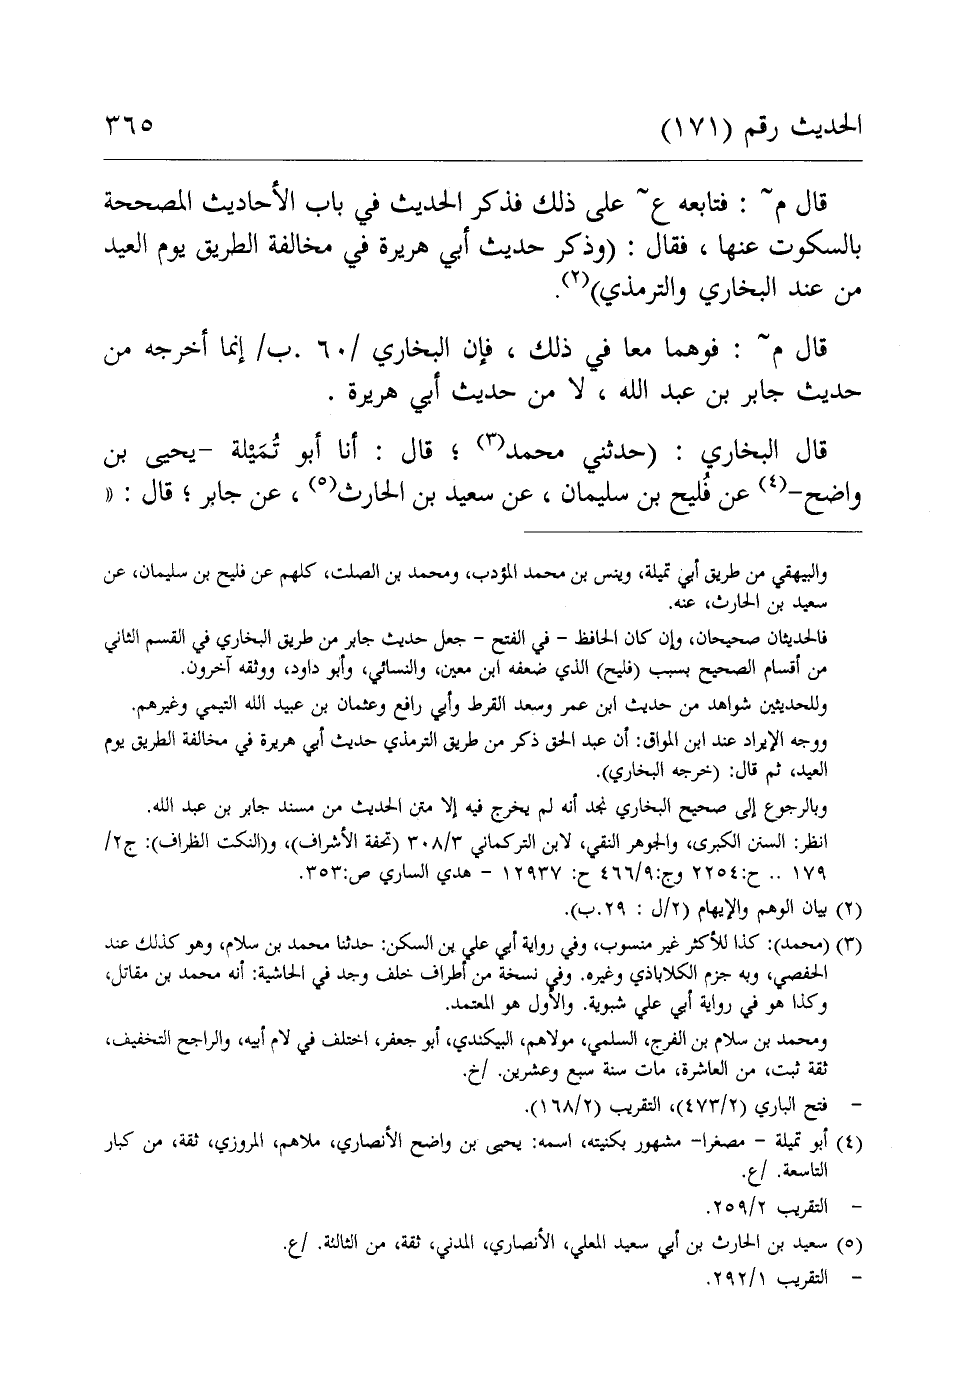 الحديث رقم (١٧١)
٣٦٥
قال م~ : فتابعه ع~ على ذلك فذكر الحديث في باب الأحاديث المصححة
بالسكوت عنها ، فقال : (وذكر حديث أبي هريرة في مخالفة الطريق يوم العيد
من عند البخاري والترمذي)(٢).
قال م~ : فوهما معا في ذلك ، فإن البخاري /٦٠ .ب/ إنما أخرجه من
حديث جابر بن عبد الله ، لا من حديث أبي هريرة .
قال البخاري : (حدثني محمد(٣) ؛ قال : أنا أبو تُمَيْلة -يحيى بن
واضح-(٤) عن فُليح بن سليمان ، عن سعيد بن الحارث(٥) ، عن جابر ؛ قال : «
والبيهقي من طريق أبي تميلة، وينس بن محمد المؤدب، ومحمد بن الصلت، كلهم عن فليح بن سليمان، عن
سعيد بن الحارث، عنه.
فالحديثان صحيحان، وإن كان الحافظ - في الفتح - جعل حديث جابر من طريق البخاري في القسم الثاني
من أقسام الصحيح بسبب (فليح) الذي ضعفه ابن معين، والنسائي، وأبو داود، ووثقه آخرون.
وللحديثين شواهد من حديث ابن عمر وسعد القرط وأبي رافع وعثمان بن عبيد الله التيمي وغيرهم.
ووجه الإيراد عند ابن المواق: أن عبد الحق ذكر من طريق الترمذي حديث أبي هريرة في مخالفة الطريق يوم
العيد، ثم قال: (خرجه البخاري).
وبالرجوع إلى صحيح البخاري نجد أنه لم يخرج فيه إلا متن الحديث من مسند جابر بن عبد الله.
انظر: السنن الكبرى، والجوهر النقي، لابن التركماني ٣٠٨/٣ (تحفة الأشراف)، و(النكت الظراف): ج٢/
١٧٩ .. ح:٢٢٥٤ وج:٤٦٦/٩ ح: ١٢٩٣٧ - هدي الساري ص:٣٥٣.
(٢) بيان الوهم والإيهام (٢/ل : ٢٩.ب).
(٣) (محمد): كذا للأكثر غير منسوب، وفي رواية أبي علي بن السكن: حدثنا محمد بن سلام، وهو كذلك عند
الحفصي، وبه جزم الكلاباذي وغيره. وفي نسخة من أطراف خلف وجد في الحاشية: أنه محمد بن مقاتل،
وكذا هو في رواية أبي علي شبوية. والأول هو المعتمد.
ومحمد بن سلام بن الفرج، السلمي، مولاهم، البيكندي، أبو جعفر، اختلف في لام أبيه، والراجح التخفيف،
ثقة ثبت، من العاشرة، مات سنة سبع وعشرين. /خ.
- فتح الباري (٤٧٣/٢)، التقريب (١٦٨/٢).
(٤) أبو تميلة - مصغرا- مشهور بكنيته، اسمه: يحيى بن واضح الأنصاري، ملاهم، المروزي، ثقة، من كبار
التاسعة. /ع.
- التقريب ٢٥٩/٢.
(٥) سعيد بن الحارث بن أبي سعيد المعلي، الأنصاري، المدني، ثقة، من الثالثة. /ع.
- التقريب ٢٩٢/١.